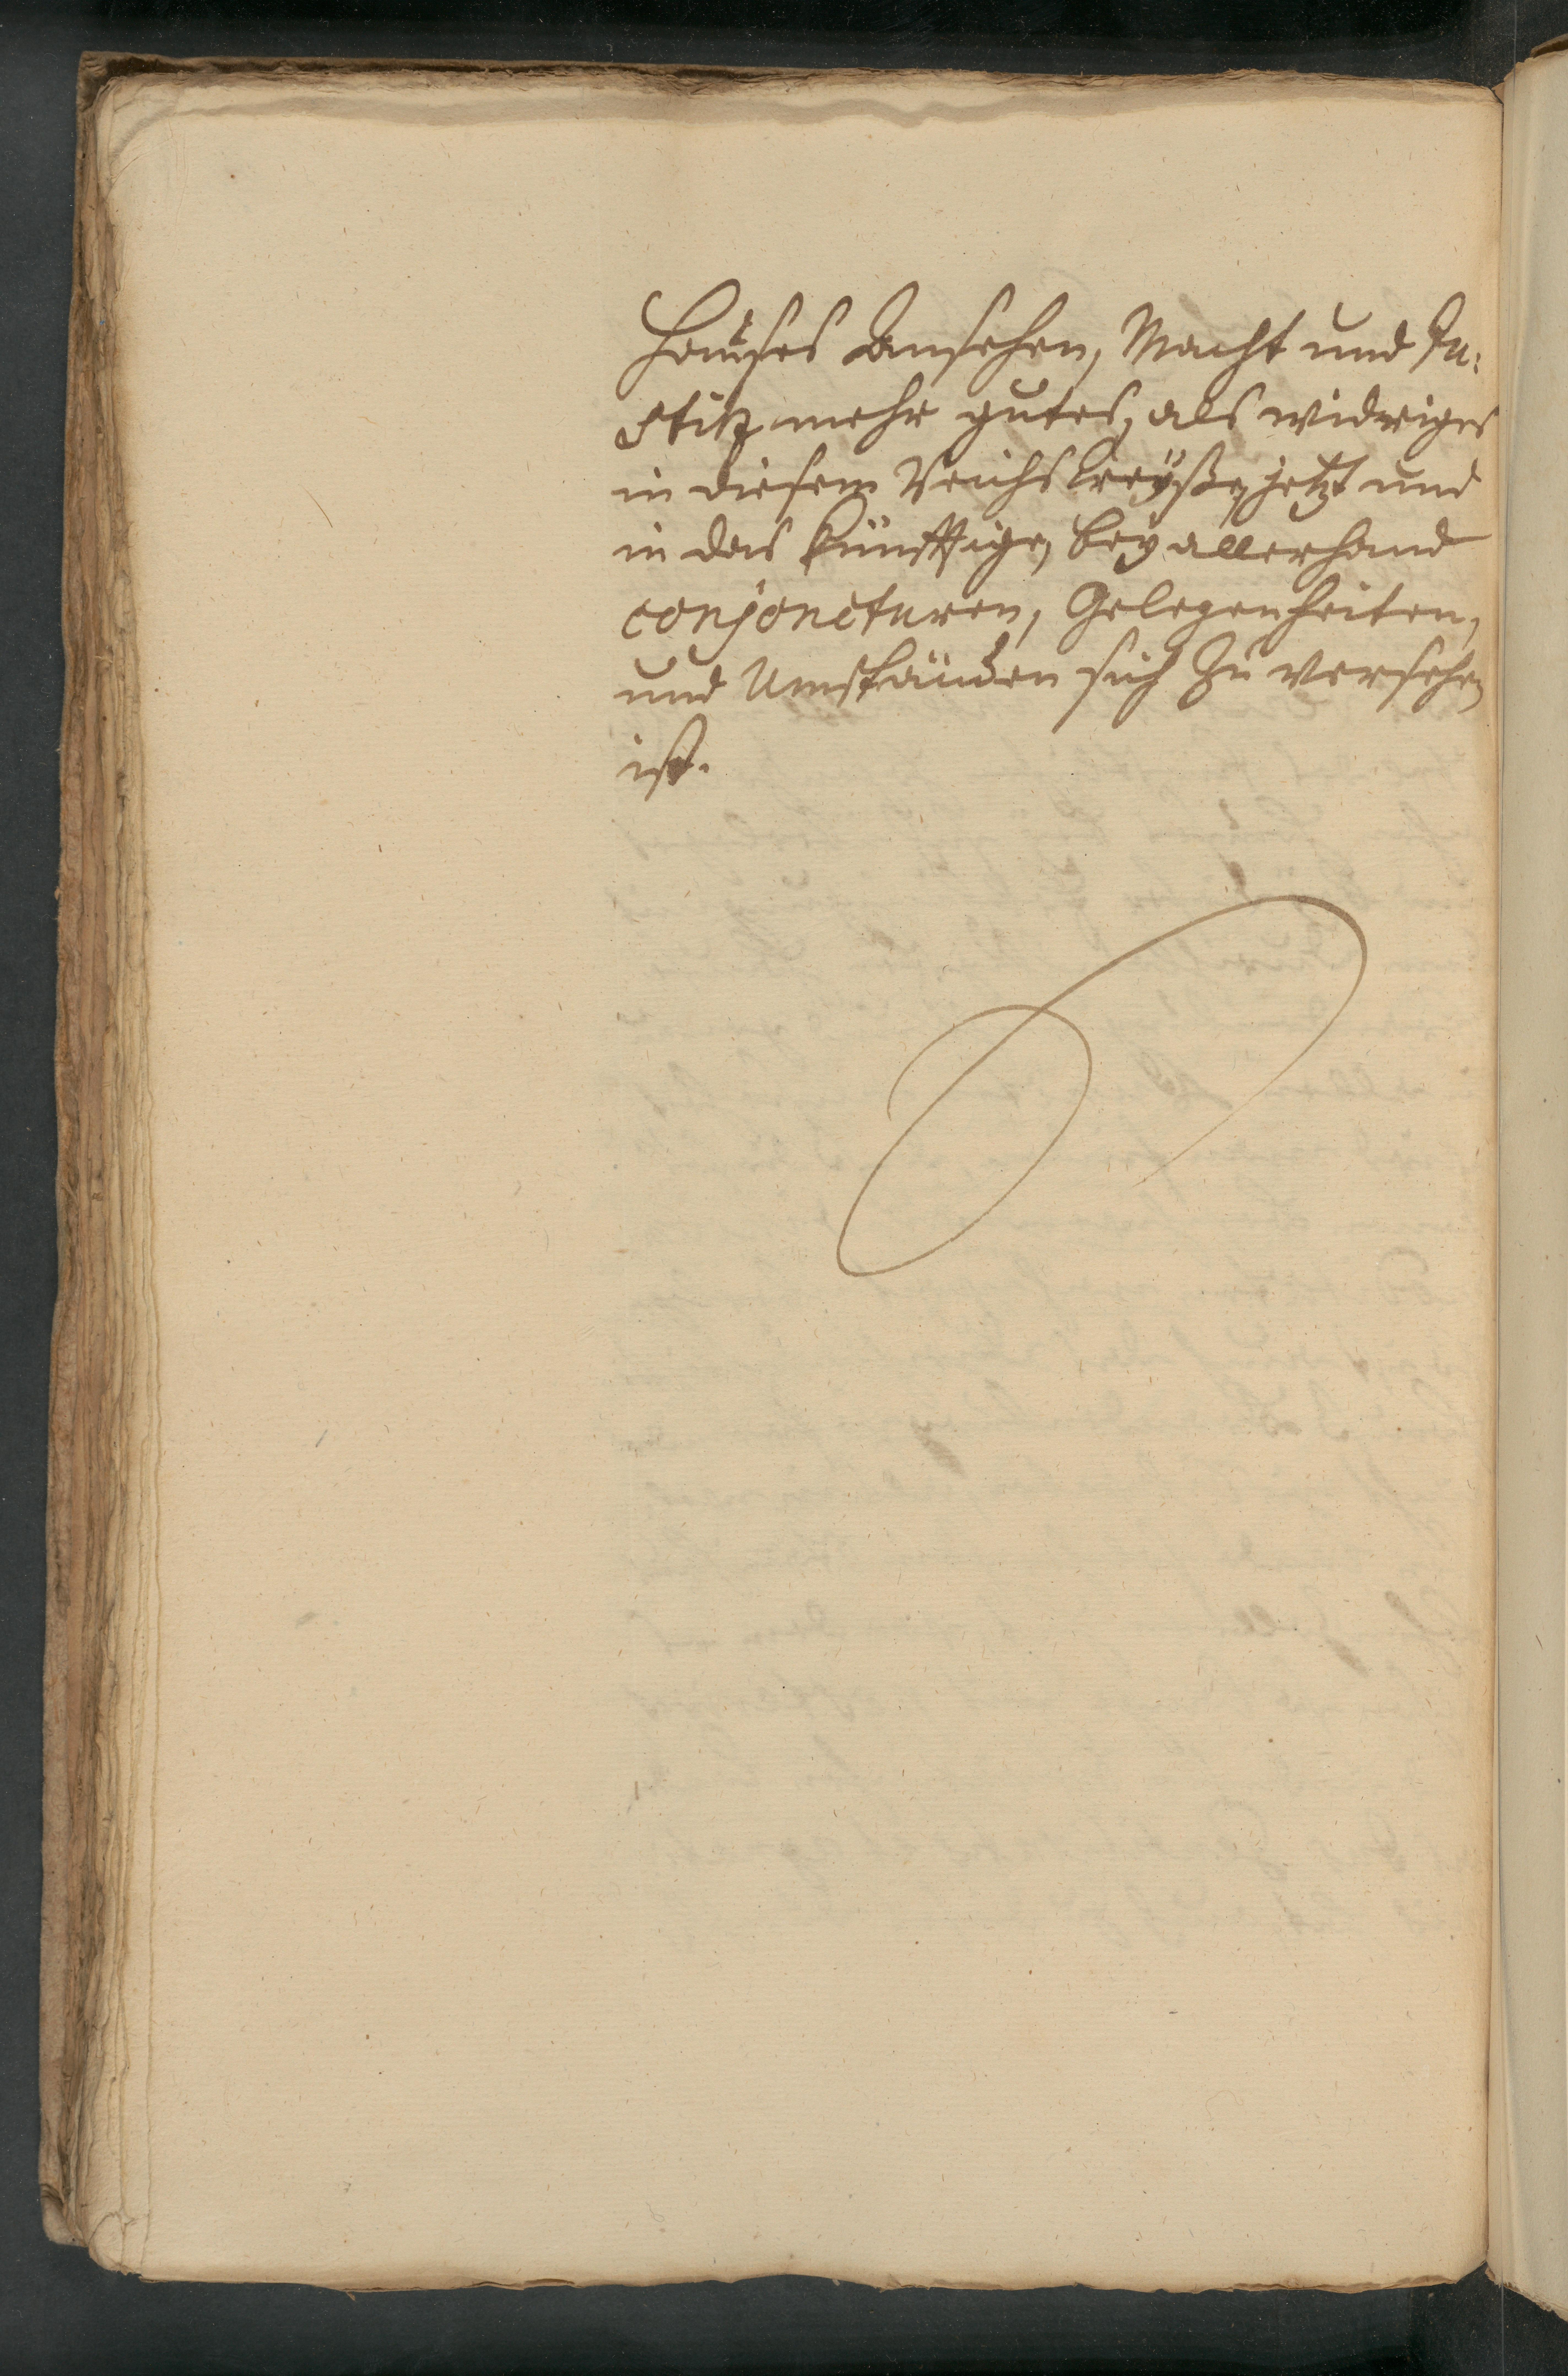 Hauses Ansehen, Macht und Ju-
stitz mehr gutes, als widriges
in diesem Reichs Creyße, jetzt und
in das künfftige, bey allerhand
conjoncturen, Gelegenheiten,
und Umständen sich zu versehen
ist.